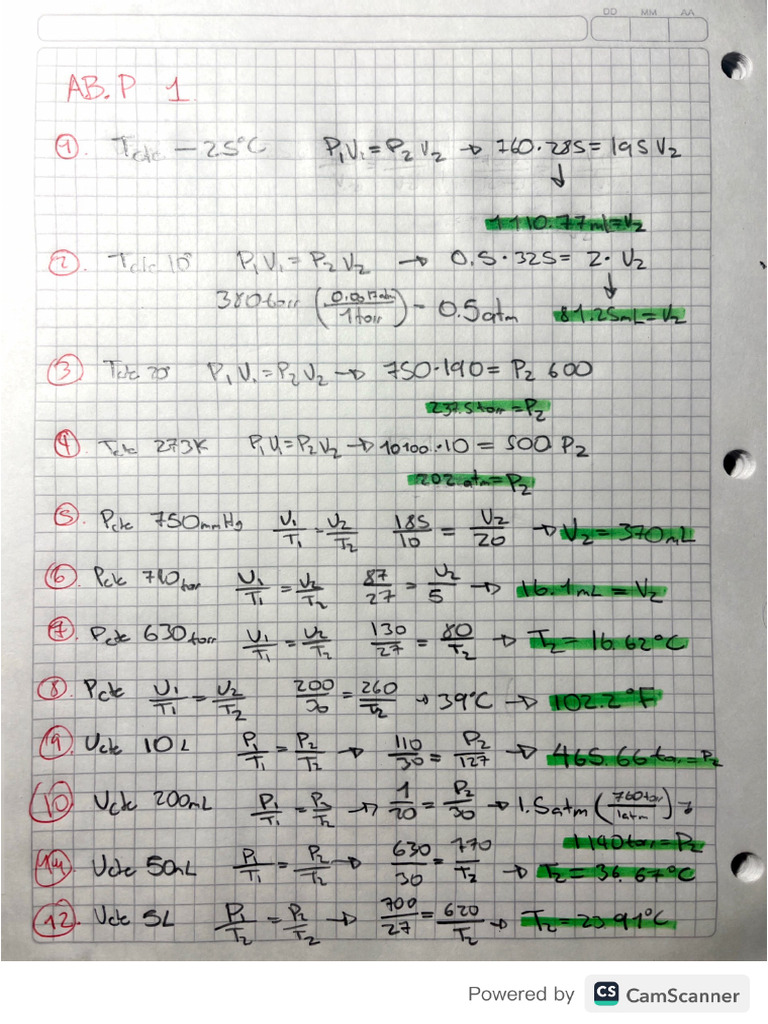 DD MM AA
AB.P 1
1. Tcte —25°C P₁V₁=P₂V₂ → 760·285=195V₂
↓
1110.77ml=V₂
2. Tcte 10° P₁V₁=P₂V₂ → 0.5·325= 2·V₂
↓
380torr (0.0013atm/1torr) - 0.5atm 81.25mL=V₂
3. Tcte 20° P₁V₁=P₂V₂ → 750·190= P₂ 600
237.5torr=P₂
4. Tcte 273K P₁V₁=P₂V₂ → 10100·10 = 500 P₂
202.atm=P₂
5. Pcte 750mmHg V₁/T₁ - V₂/T₂ 185/10 = V₂/20 → V₂=370mL
6. Pcte 740torr V₁/T₁ = V₂/T₂ 87/27 = V₂/5 → 16.1mL = V₂
7. Pcte 630torr V₁/T₁ = V₂/T₂ 130/27 = 80/T₂ → T₂=16.62°C
8. Pcte V₁/T₁ = V₂/T₂ 200/30 = 260/T₂ → 39°C → 102.2°F
9. Vcte 10L P₁/T₁ = P₂/T₂ → 110/30 = P₂/127 → 465.66torr=P₂
10. Vcte 200mL P₁/T₁ = P₂/T₂ → 1/20 = P₂/30 → 1.5atm (760torr/1atm) →
1140torr=P₂
11. Vcte 50mL P₁/T₁ = P₂/T₂ → 630/30 = 770/T₂ → T₂= 36.67°C
12. Vcte 5L P₁/T₂ = P₂/T₂ → 700/27 = 620/T₂ → T₂=23.91°C
Powered by CS CamScanner